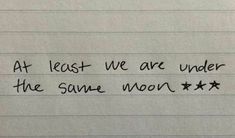 At least we are under
the same moon ★★★